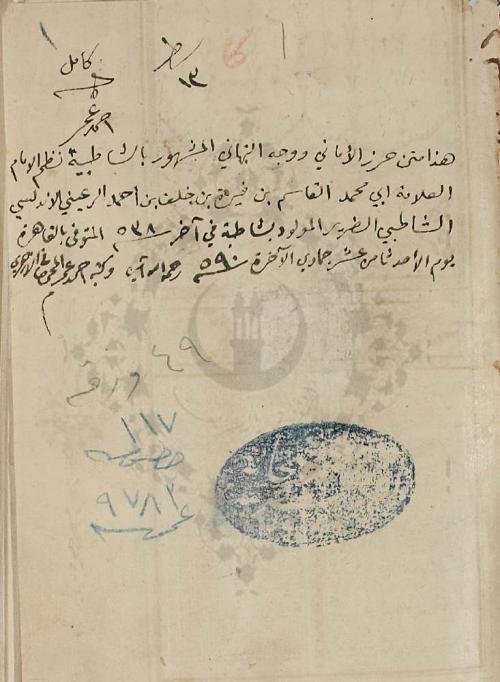 كامل
سطر
١٣
احمد عمر
هذا متن حرز الأماني ووجه التهاني المشهور بالشاطبية نظم الامام
العلامة ابي محمد القاسم بن فيرة بن خلف بن أحمد الرعيني الاندلسي
الشاطبي الضرير المولود بشاطبة في آخر ٥٣٨ المتوفى بالقاهرة
يوم الأحد ثامن عشر جمادي الآخرة ٥٩٠ رحمه الله آمين وكتبه احمد عمر
٤٩
ورقة
١١٧
خصوصية
٩٧٨٢
عمومية